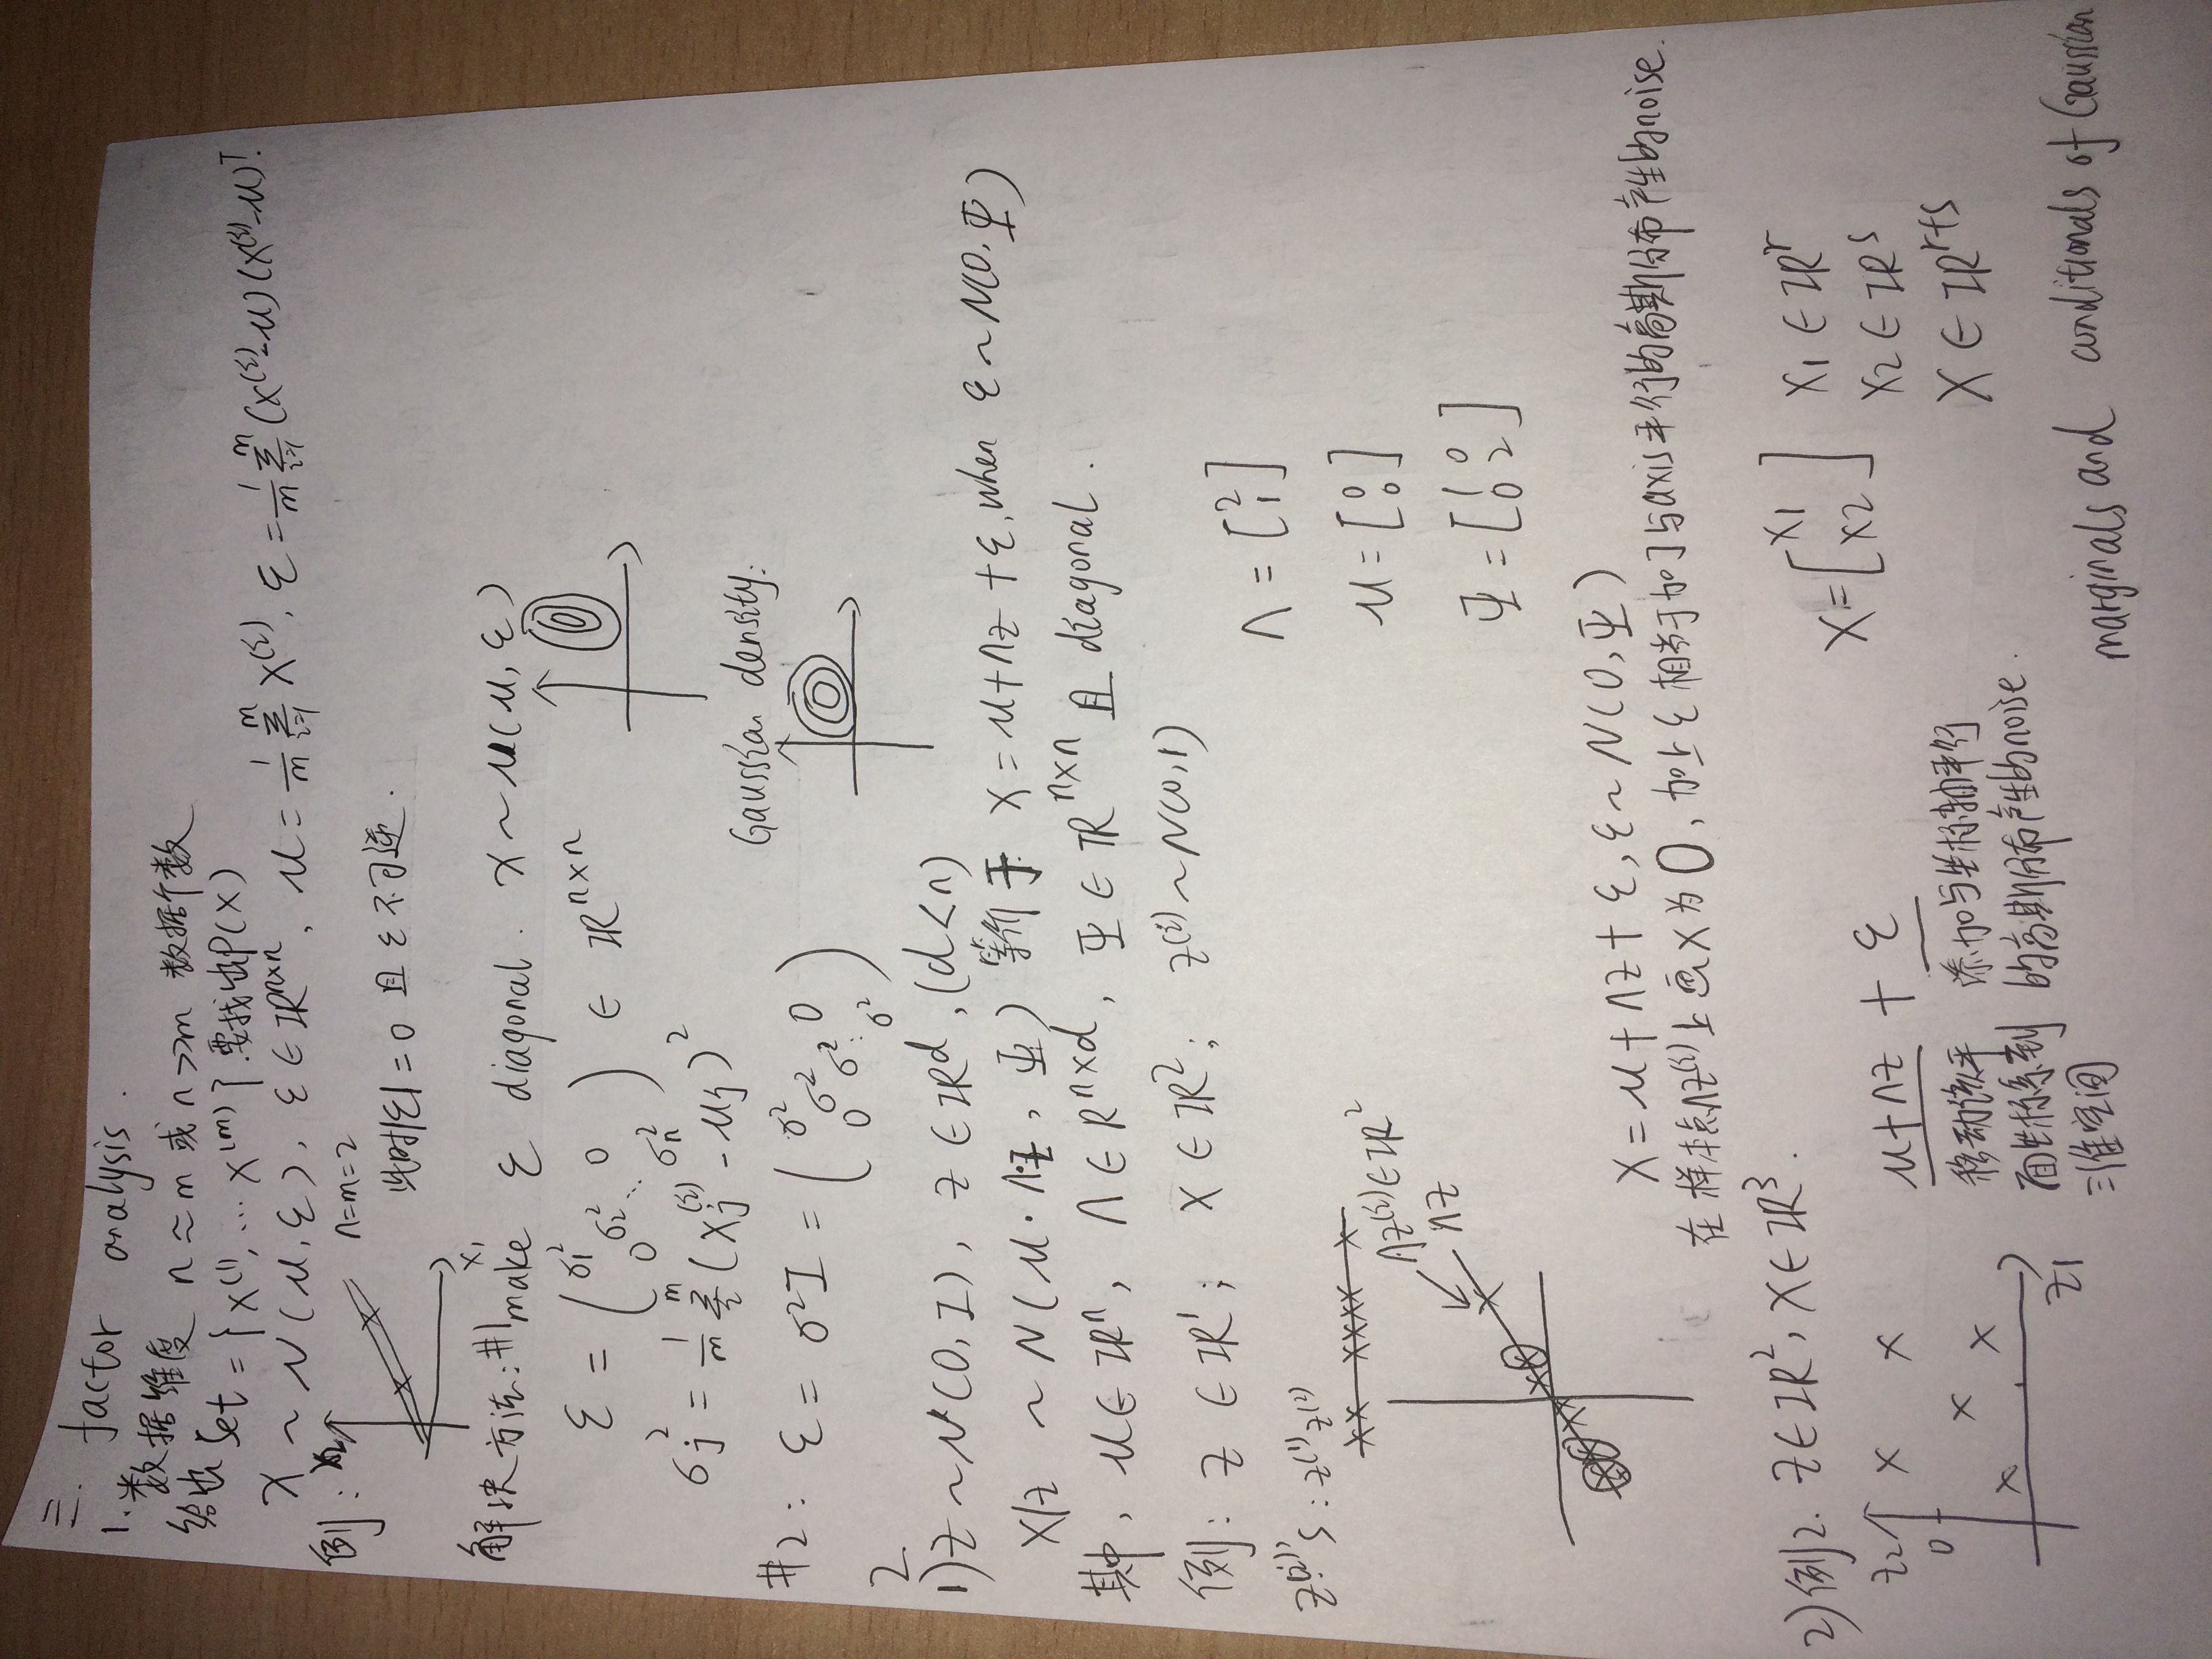 三. factor analysis.
1. 数据维度 n≈m 或 n>>m 数据个数
给出 Set = {x^(1), … x^(m)} 要找出P(x)
x ~ N(μ, ε), ε ∈ ℝ^{n×n}, μ = 1/m Σ_{i=1}^m x^(i), ε = 1/m Σ_{i=1}^m (x^(i)-μ)(x^(i)-μ)^T.
例: x2
n=m=2
此时|ε|=0 且 ε 不可逆.
x1
解决方法: #1 make ε diagonal. x~N(μ, ε)
ε = ( σ1² σ2² 0 0 ⋱ σn² ) ∈ ℝ^{n×n}
σj² = 1/m Σ_i^m (xj^(i) - μj)²
Gaussian density.
#2: ε = σ²I = ( σ² σ² 0 0 σ² ⋱ σ² )
2
1) z ~ N(0, I), z ∈ ℝ^d, (d<n)
x|z ~ N(μ·Λz, Ψ) 等价于 x = μ+Λz+ε, when ε ~ N(0, Ψ)
其中, μ∈ℝ^n, Λ∈R^{n×d}, Ψ∈ℝ^{n×n} 且 diagonal.
例: z ∈ ℝ^1; x ∈ ℝ^2; z^(i) ~ N(0,1)
Λ = [2 1]
z^(i)'s: z^(1) z^(2)
μ = [0 0]
Λz^(i)∈ℝ^2
Λz
Ψ = [1 0 0 2]
x = μ+Λz+ε, ε ~ N(0, Ψ)
在样本点Λz^(i)上画x为0, 加上ε相当于加了与axis平行的高斯分布产生的noise.
2) 例2. z∈ℝ^2, x∈ℝ^3.
x = [x1 x2] x1 ∈ ℝ^r
x2 ∈ ℝ^s
x ∈ ℝ^{r+s}
z2
0
z1
μ+Λz + ε
移动该平 添加与坐标轴平行
面坐标系到 的高斯分布产生的noise.
三维空间
marginals and conditionals of Gaussian